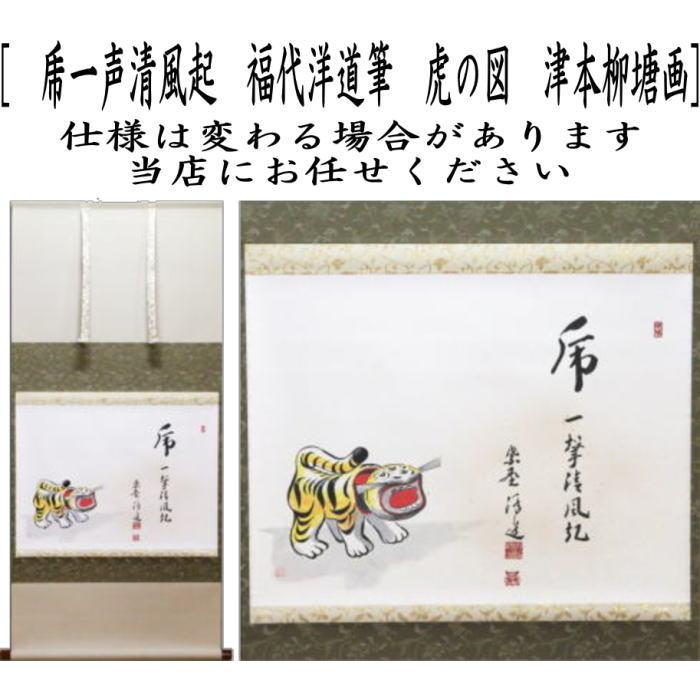 [ 乕一声清風起 福代洋道筆 虎の図 津本柳塘画]
仕様は変わる場合があります
当店にお任せください
乕
一聲清風起
洋道
乕
一聲清風起
洋道